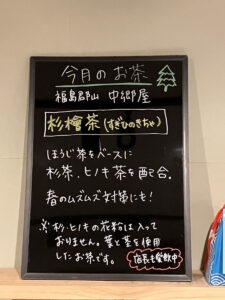 今月のお茶
福島郡山 中郷屋
杉檜茶(すぎひのきちゃ)
ほうじ茶をベースに
杉茶、ヒノキ茶を配合。
春のムズムズ対策にも!
※杉・ヒノキの花粉は入って
おりません。葉と茎を使用
したお茶です。
店長も愛飲中